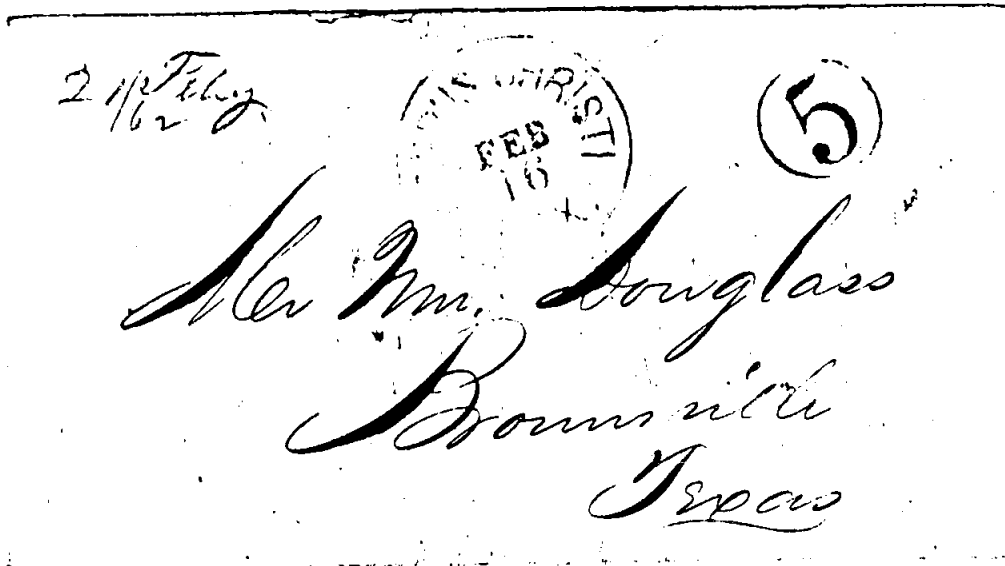 21 Feby
/62
CHRISTI
FEB
16
5
Mr Wm. Douglass
Brownsville
Texas